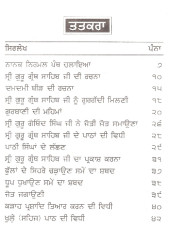 ਤਤਕਰਾ
ਸਿਰਲੇਖ ਪੰਨਾ
ਨਾਨਕ ਨਿਰਮਲ ਪੰਥ ਚਲਾਇਆ ੭
ਸ੍ਰੀ ਗੁਰੂ ਗ੍ਰੰਥ ਸਾਹਿਬ ਜੀ ਦੀ ਰਚਨਾ ੧੦
ਦਮਦਮੀ ਬੀੜ ਦੀ ਰਚਨਾ ੧੪
ਸ੍ਰੀ ਗੁਰੂ ਗ੍ਰੰਥ ਸਾਹਿਬ ਜੀ ਨੂੰ ਗੁਰਗੱਦੀ ਮਿਲਣੀ ੧੮
ਗੁਰਬਾਣੀ ਦੀ ਮਹਿਮਾ ੨੦
ਸ੍ਰੀ ਗੁਰੂ ਗੋਬਿੰਦ ਸਿੰਘ ਜੀ ਨੇ ਜੋਤੀ ਜੋਤ ਸਮਾਉਣਾ ੨੪
ਸ੍ਰੀ ਗੁਰੂ ਗ੍ਰੰਥ ਸਾਹਿਬ ਜੀ ਦੇ ਪਾਠਾਂ ਦੀ ਵਿਧੀ ੨੬
ਪਾਠੀ ਸਿੰਘਾਂ ਦੇ ਲੱਛਣ ੨੯
ਸ੍ਰੀ ਗੁਰੂ ਗ੍ਰੰਥ ਸਾਹਿਬ ਜੀ ਦਾ ਪ੍ਰਕਾਸ਼ ਕਰਨਾ
ਫੁੱਲਾਂ ਦੇ ਸਿਹਰੇ ਚੜਾਉਣ ਸਮੇਂ ਦਾ ਸ਼ਬਦ
ਧੂਪ ਧੁਖਾਉਣ ਸਮੇਂ ਦਾ ਸ਼ਬਦ
ਜੋਤ ਜਗਾਉਣੀ
ਕੜਾਹ ਪ੍ਰਸ਼ਾਦਿ ਤਿਆਰ ਕਰਨ ਦੀ ਵਿਧੀ ੪੦
ਖੁਲ੍ਹੇ (ਸਹਿਜ) ਪਾਠ ਦੀ ਵਿਧੀ ੪੨